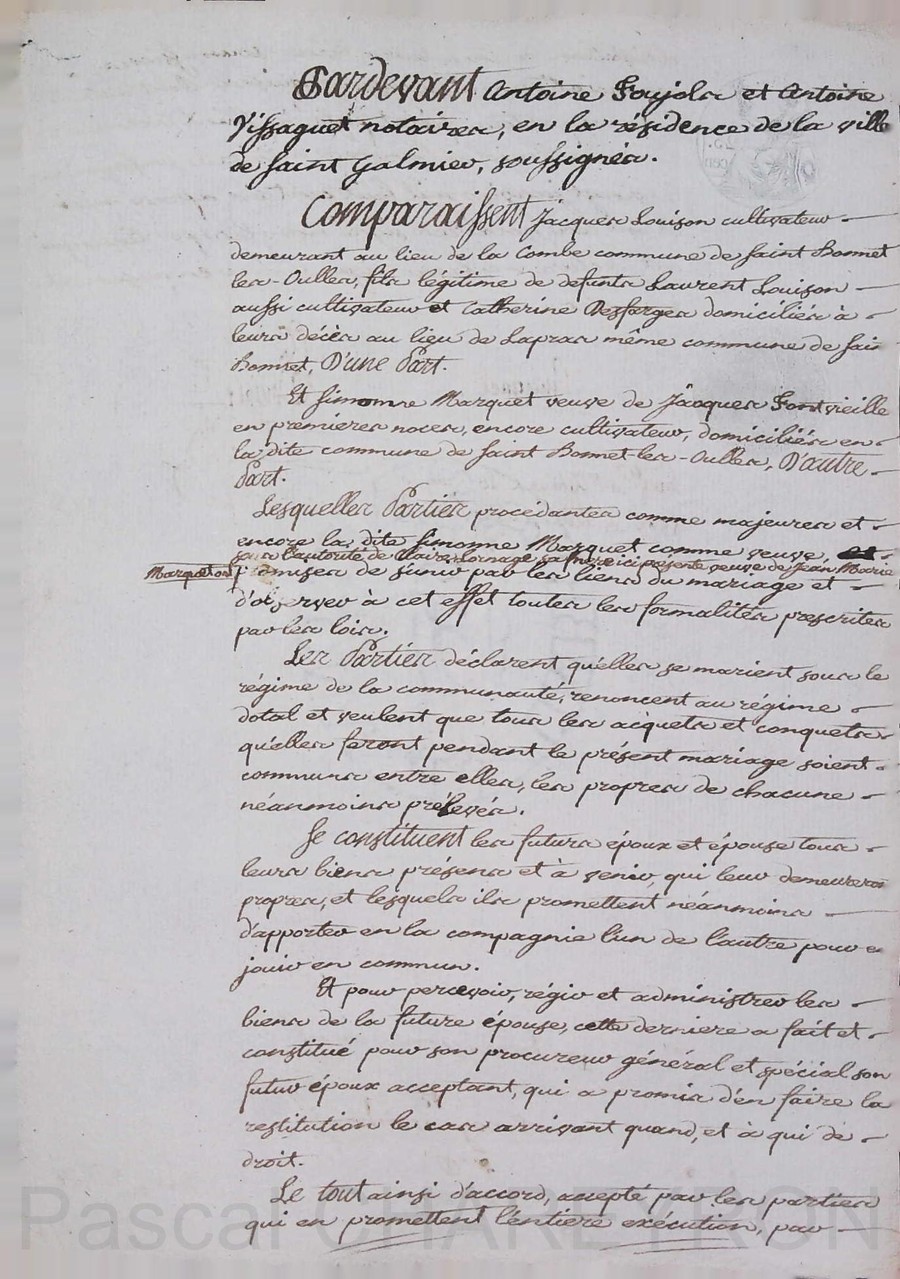 Pardevant Antoine Foujols et Antoine
Vissaguet notaires, en la résidence de la ville
de saint Galmier, soussignés.
Comparaissent Jacques Louison cultivateur
demeurant au lieu de la Combe commune de saint Bonnet
les-Oulles, fils légitime de defunts Laurent Louison
aussi cultivateur et Catherine Desfarges domiciliés à
leurs décès au lieu de Lapras même commune de sain
Bonnet, D'une Part.
Et simonne Marquet veuve de Jâcques Fontvieille
en premieres noces, encore cultivateur, domiciliés en
la dite commune de saint Bonnet les-Oulles, D'autre
Part.
Lesquelles Parties procédantes comme majeures et
encore la dite simonne Marquet comme veuve, et
sous l'autorité de Claire Lornage sa mère ici présente veuve de Jean Marie
Marquet ont
promises de s'unir par les liens du mariage et
d'observer à cet effet toutes les formalités prescrites
par les lois.
Les Parties déclarent qu'elles se marient sous le
régime de la communauté, renoncent au régime
dotal et veulent que tous les acquets et conquets
qu'elles feront pendant le présent mariage soient
communs entre elles, les propres de chacune
néanmoins prélevés.
Se constituent les futurs époux et épouse tous
leurs biens présens et à venir, qui leur demeureront
propres, et lesquels ils promettent néanmoins
d'apporter en la compagnie l'un de l'autre pour en
jouir en commun.
Et pour percevoir, régir et administrer les
biens de la future épouse, cette derniere a fait et
constitué pour son procureur général et spécial son
futur époux acceptant, qui a promis d'en faire la
restitution le cas arrivant quand, et à qui de
droit.
Le tout ainsi d'accord, accepté par les parties
qui en promettent l'entiere exécution, par
Pascal CHAREYRON